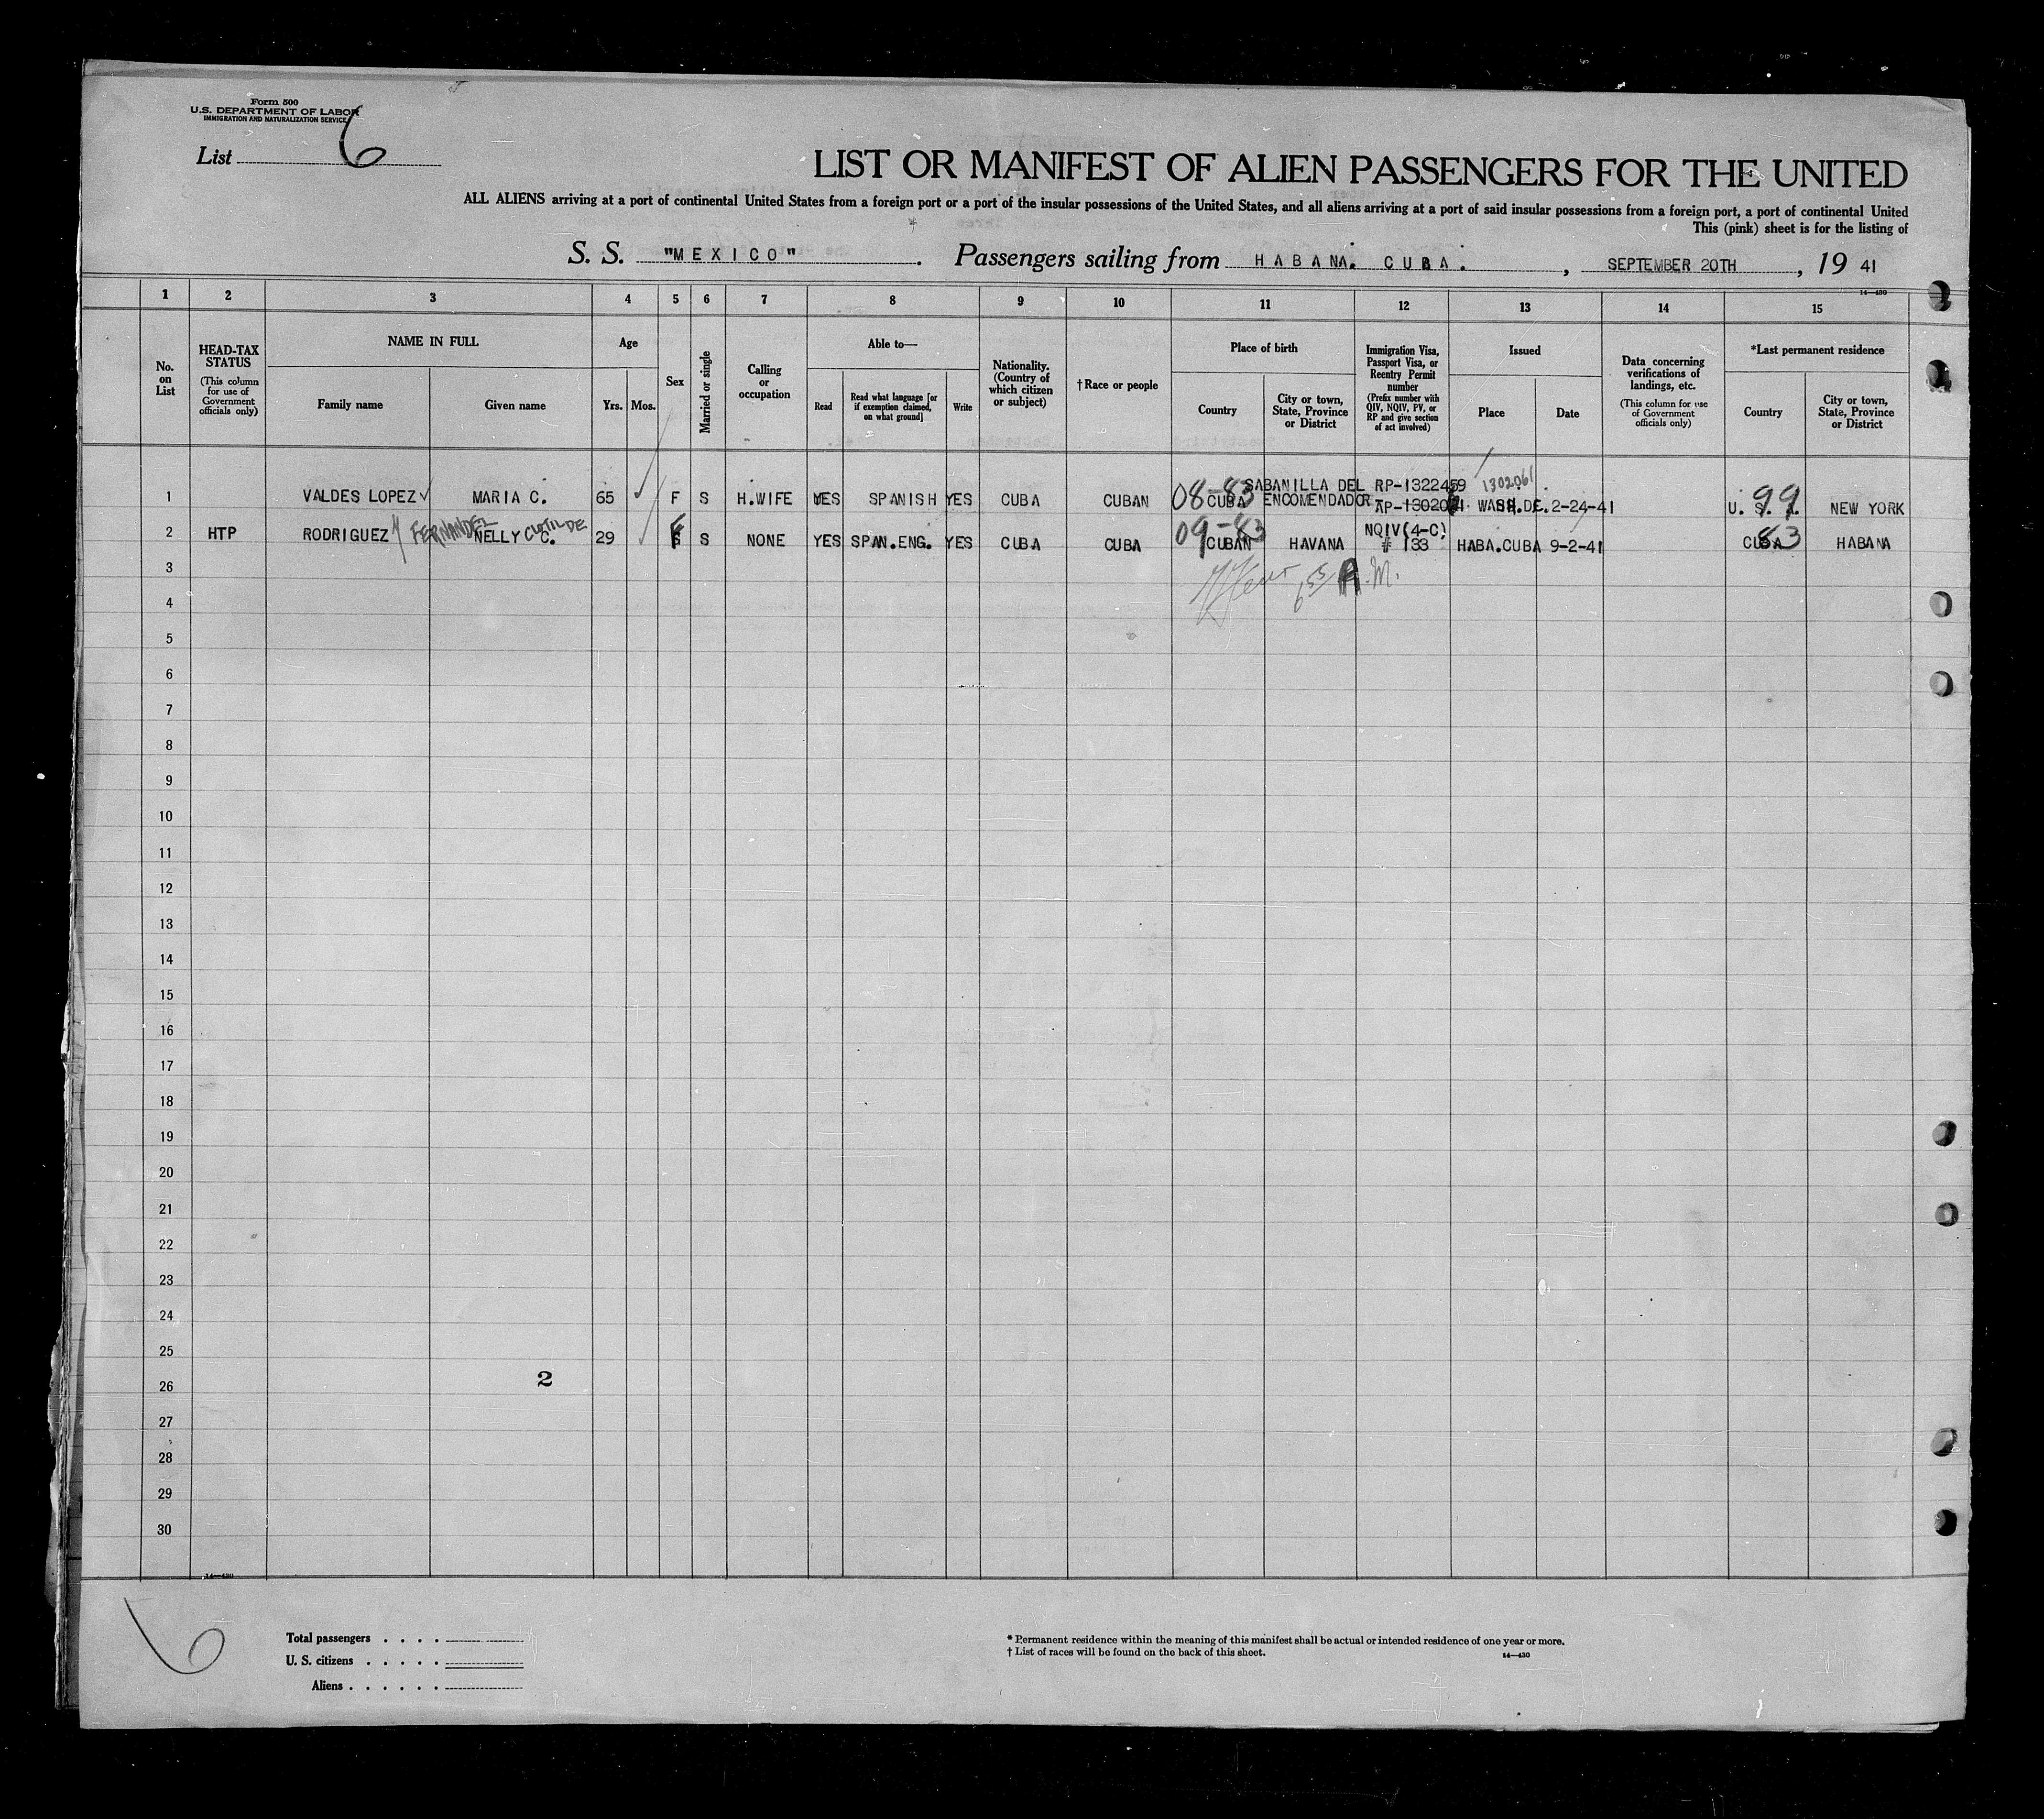 Form 500
U.S. DEPARTMENT OF LABOR
IMMIGRATION AND NATURALIZATION SERVICE
List 6
LIST OR MANIFEST OF ALIEN PASSENGERS FOR THE UNITED
ALL ALIENS arriving at a port of continental United States from a foreign port or a port of the insular possessions of the United States, and all aliens arriving at a port of said insular possessions from a foreign port, a port of continental United
This (pink) sheet is for the listing of
S. S. "MEXICO". Passengers sailing from HABANA. CUBA., SEPTEMBER 20TH, 19 41
14—430
1 2 3 4 5 6 7 8 9 10 11 12 13 14 15
No. on List
HEAD-TAX STATUS
(This column for use of Government officials only)
NAME IN FULL
Family name
Given name
Age
Yrs. Mos.
Sex
Married or single
Calling or occupation
Able to—
Read
Read what language [or if exemption claimed, on what ground]
Write
Nationality. (Country of which citizen or subject)
†Race or people
Place of birth
Country
City or town, State, Province or District
Immigration Visa, Passport Visa, or Reentry Permit number
(Prefix number with QIV, NQIV, PV, or RP and give section of act involved)
Issued
Place
Date
Data concerning verifications of landings, etc.
(This column for use of Government officials only)
*Last permanent residence
Country
City or town, State, Province or District
SABANILLA DEL RP-1322459 1302061
1 VALDES LOPEZ MARIA C. 65 F S H.WIFE YES SPANISH YES CUBA CUBAN 08-83 CUBA ENCOMENDADOR AP-130206 WASH.DE. 2-24-41 U. S. A. 99 NEW YORK
2 HTP RODRIGUEZ Y FERNANDEZ NELLY C. CLOTILDE 29 F S NONE YES SPAN.ENG. YES CUBA CUBA 09-83 CUBAN HAVANA NQIV(4-C) # 133 HABA.CUBA 9-2-41 CUBA 83 HABANA
3 6 55 A.M.
4
5
6
7
8
9
10
11
12
13
14
15
16
17
18
19
20
21
22
23
24
25
2
26
27
28
29
30
14—430
6
Total passengers . . . .
U. S. citizens . . . . .
Aliens . . . . . .
* Permanent residence within the meaning of this manifest shall be actual or intended residence of one year or more.
† List of races will be found on the back of this sheet.
14—430